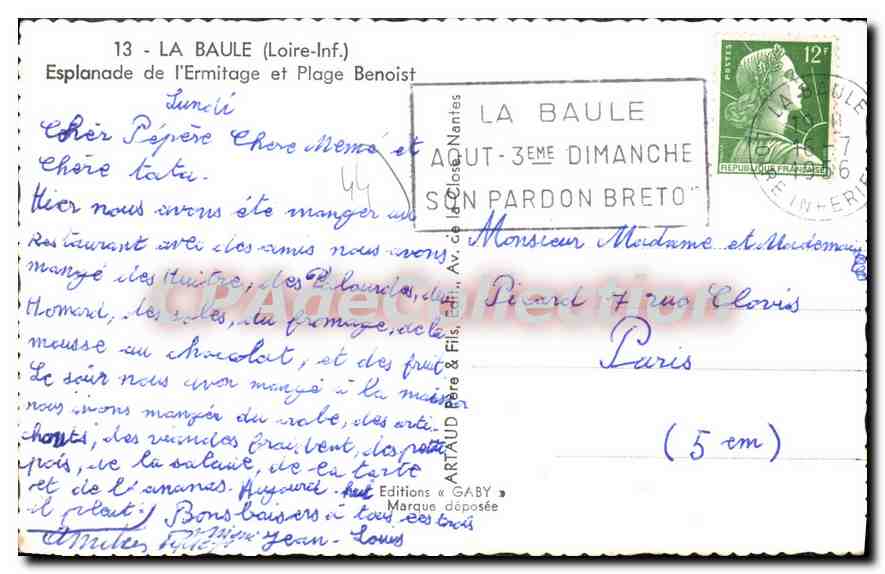 13 - LA BAULE (Loire-Inf.)
Esplanade de l'Ermitage et Plage Benoist
Lundi
Cher Pépère Chere Memé et
Chère tata.
44
Hier nous avons éte manger au
Restaurant avec des amis nous avons
mangé des Huitre, des Palourdes, des
Homard, des soles, du fromage, de la
mousse au chocolat, et des fruit
Le soir nous avon mangé à la maison
nous avons mangée du crabe, des arti-
chauts, des viandes froides, des petits
pois, de la salade, de la tarte
et de l'ananas. Aujourd-hui
il pleut! Bons baisers à tous les trois
Jean-Louis
ARTAUD Père & Fils, Edit., Av. de la Close, Nantes
Editions « GABY »
Marque déposée
LA BAULE
AOUT - 3EME DIMANCHE
SON PARDON BRETO
POSTES
12F
REPUBLIQUE FRANÇAISE
LA BAULE
16-7
1956
LOIRE INFERIE
Monsieur Madame et Mademoiselle
Picard 7 rue Clovis
Paris
(5 em)
CPAdeCollection